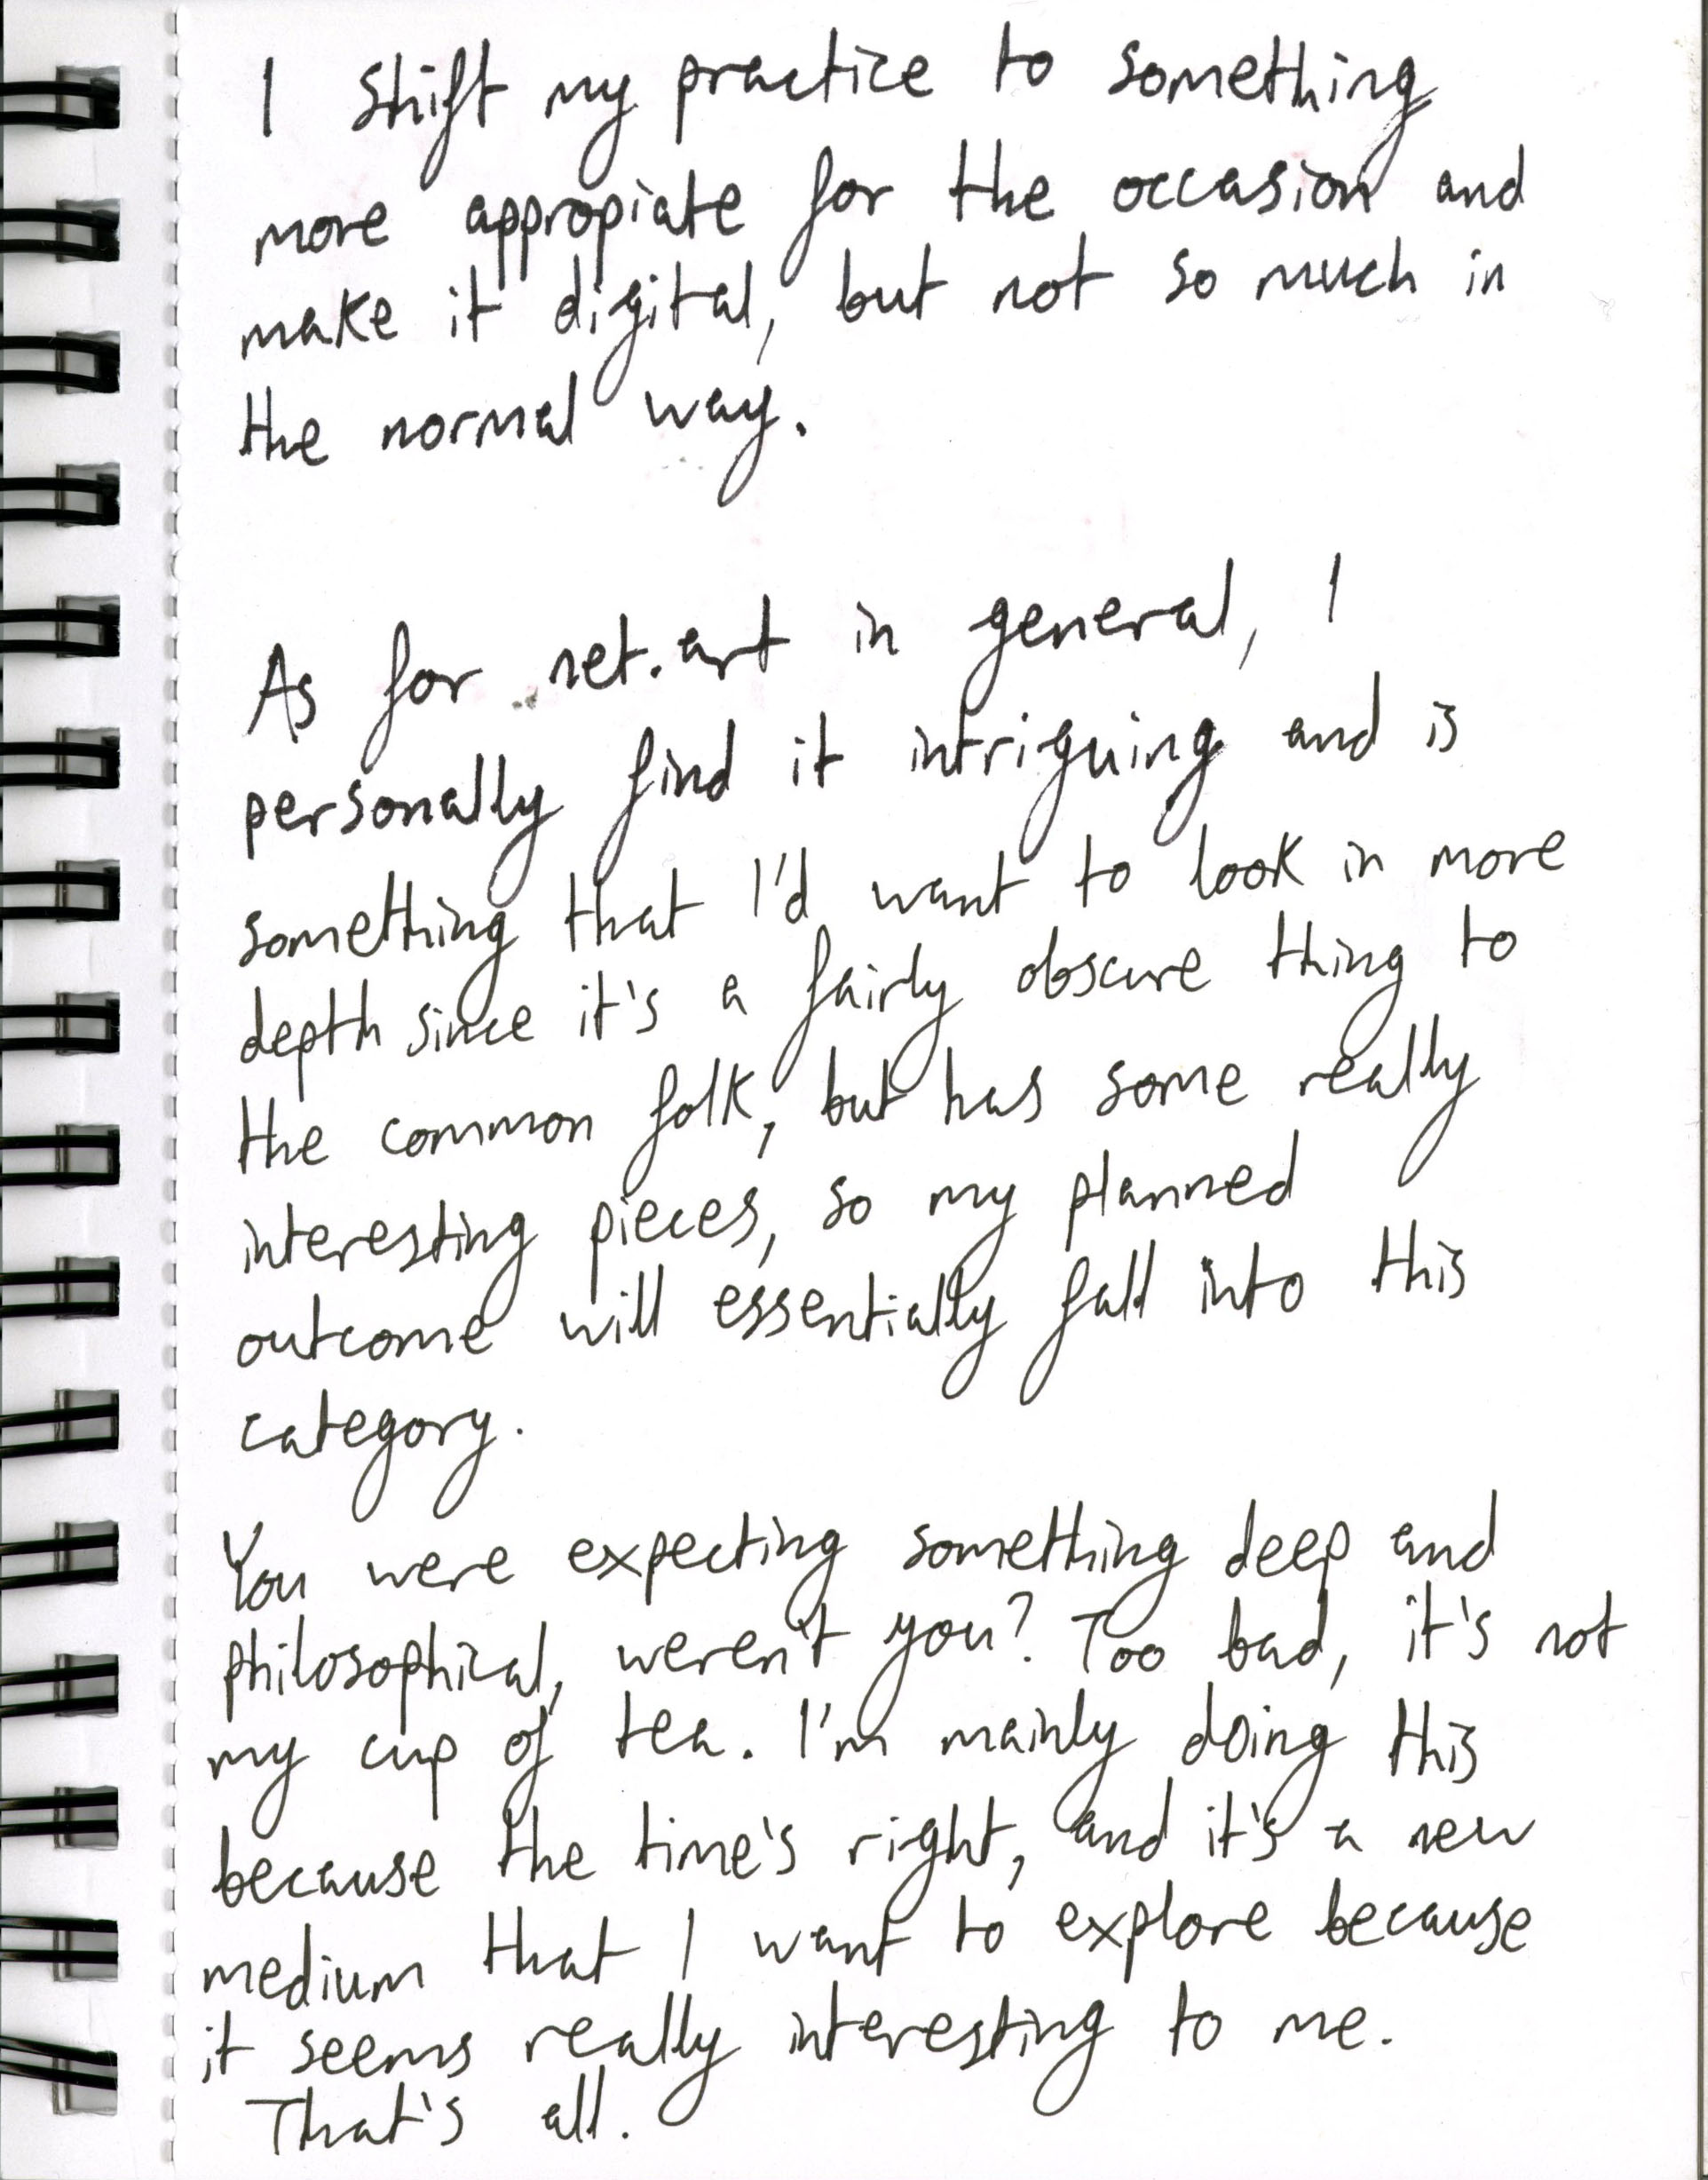 I shift my practice to something
more appropiate for the occasion and
make it digital, but not so much in
the normal way.
As for net.art in general, I
personally find it intriguing and is
something that I'd want to look in more
depth since it's a fairly obscure thing to
the common folk, but has some really
interesting pieces, so my planned
outcome will essentially fall into this
category.
You were expecting something deep and
philosophical, weren't you? Too bad, it's not
my cup of tea. I'm mainly doing this
because the time's right, and it's a new
medium that I want to explore because
it seems really interesting to me.
That's all.